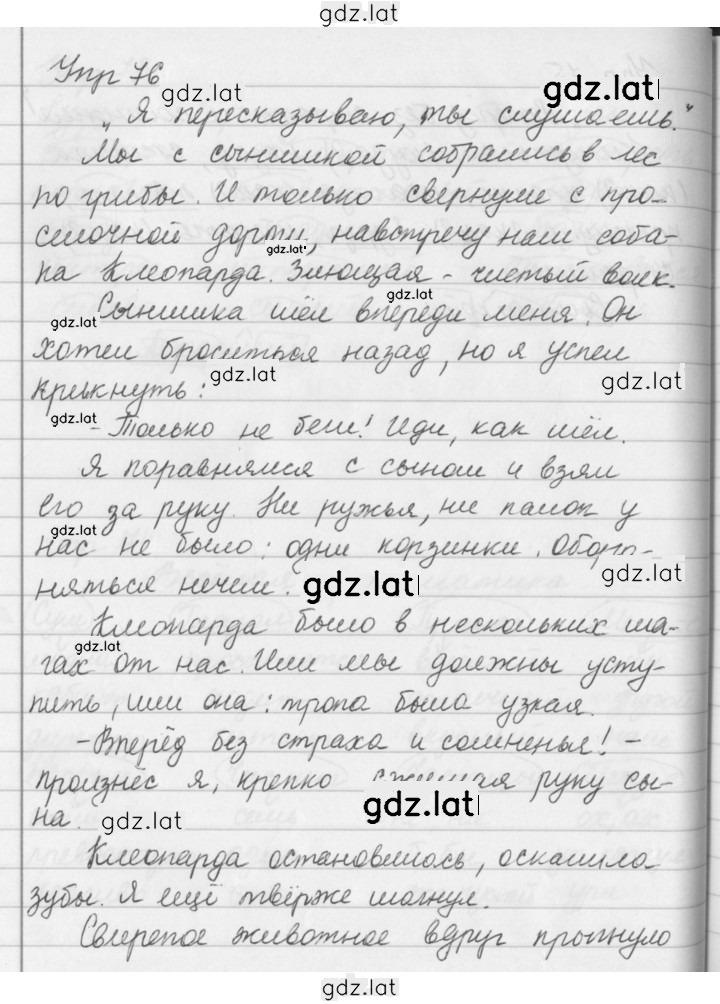 gdz.lat
Упр 76
gdz.lat
gdz.lat
„Я пересказываю, ты слушаешь."
Мы с сынишкой собрались в лес
по грибы. И только свернули с про-
сёлочной
gdz.lat
, навстречу нам соба-
ка Клеопарда. Злющая - чистый волк.
gdz.lat
Сынишка шёл впереди меня. Он
gdz.lat
хотел броситься назад, но я успел
gdz.lat
gdz.lat
крикнуть:
gdz.lat
- Только не беги! Иди, как шёл.
Я поравнялся с сыном и взял
его за руку. Ни ружья, ни палок у
gdz.lat
нас не было: одни корзинки. Оборо-
gdz.lat
няться нечем.
gdz.lat
Клеопарда было в нескольких ша-
gdz.lat
гах от нас. Или мы должны усту-
пить, или она: тропа была узкая.
- Вперёд без страха и сомненья! -
произнёс я, крепко руку сы-
на.
gdz.lat
gdz.lat
Клеопарда остановилось, оскалила
зубы. Я ещё твёрже шагнул.
Свирепое животное вдруг прыгнуло
gdz.lat